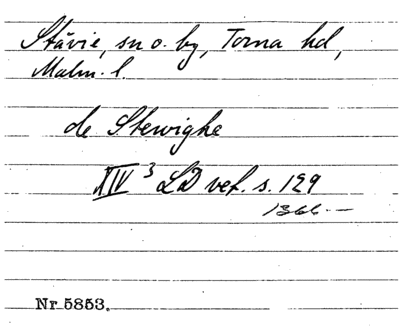 Stävie, sn o. by, Torna hd,
Malm. l.
de Stewighe
XIV 3 LD vet. s. 129
1366 —
Nr 5853.